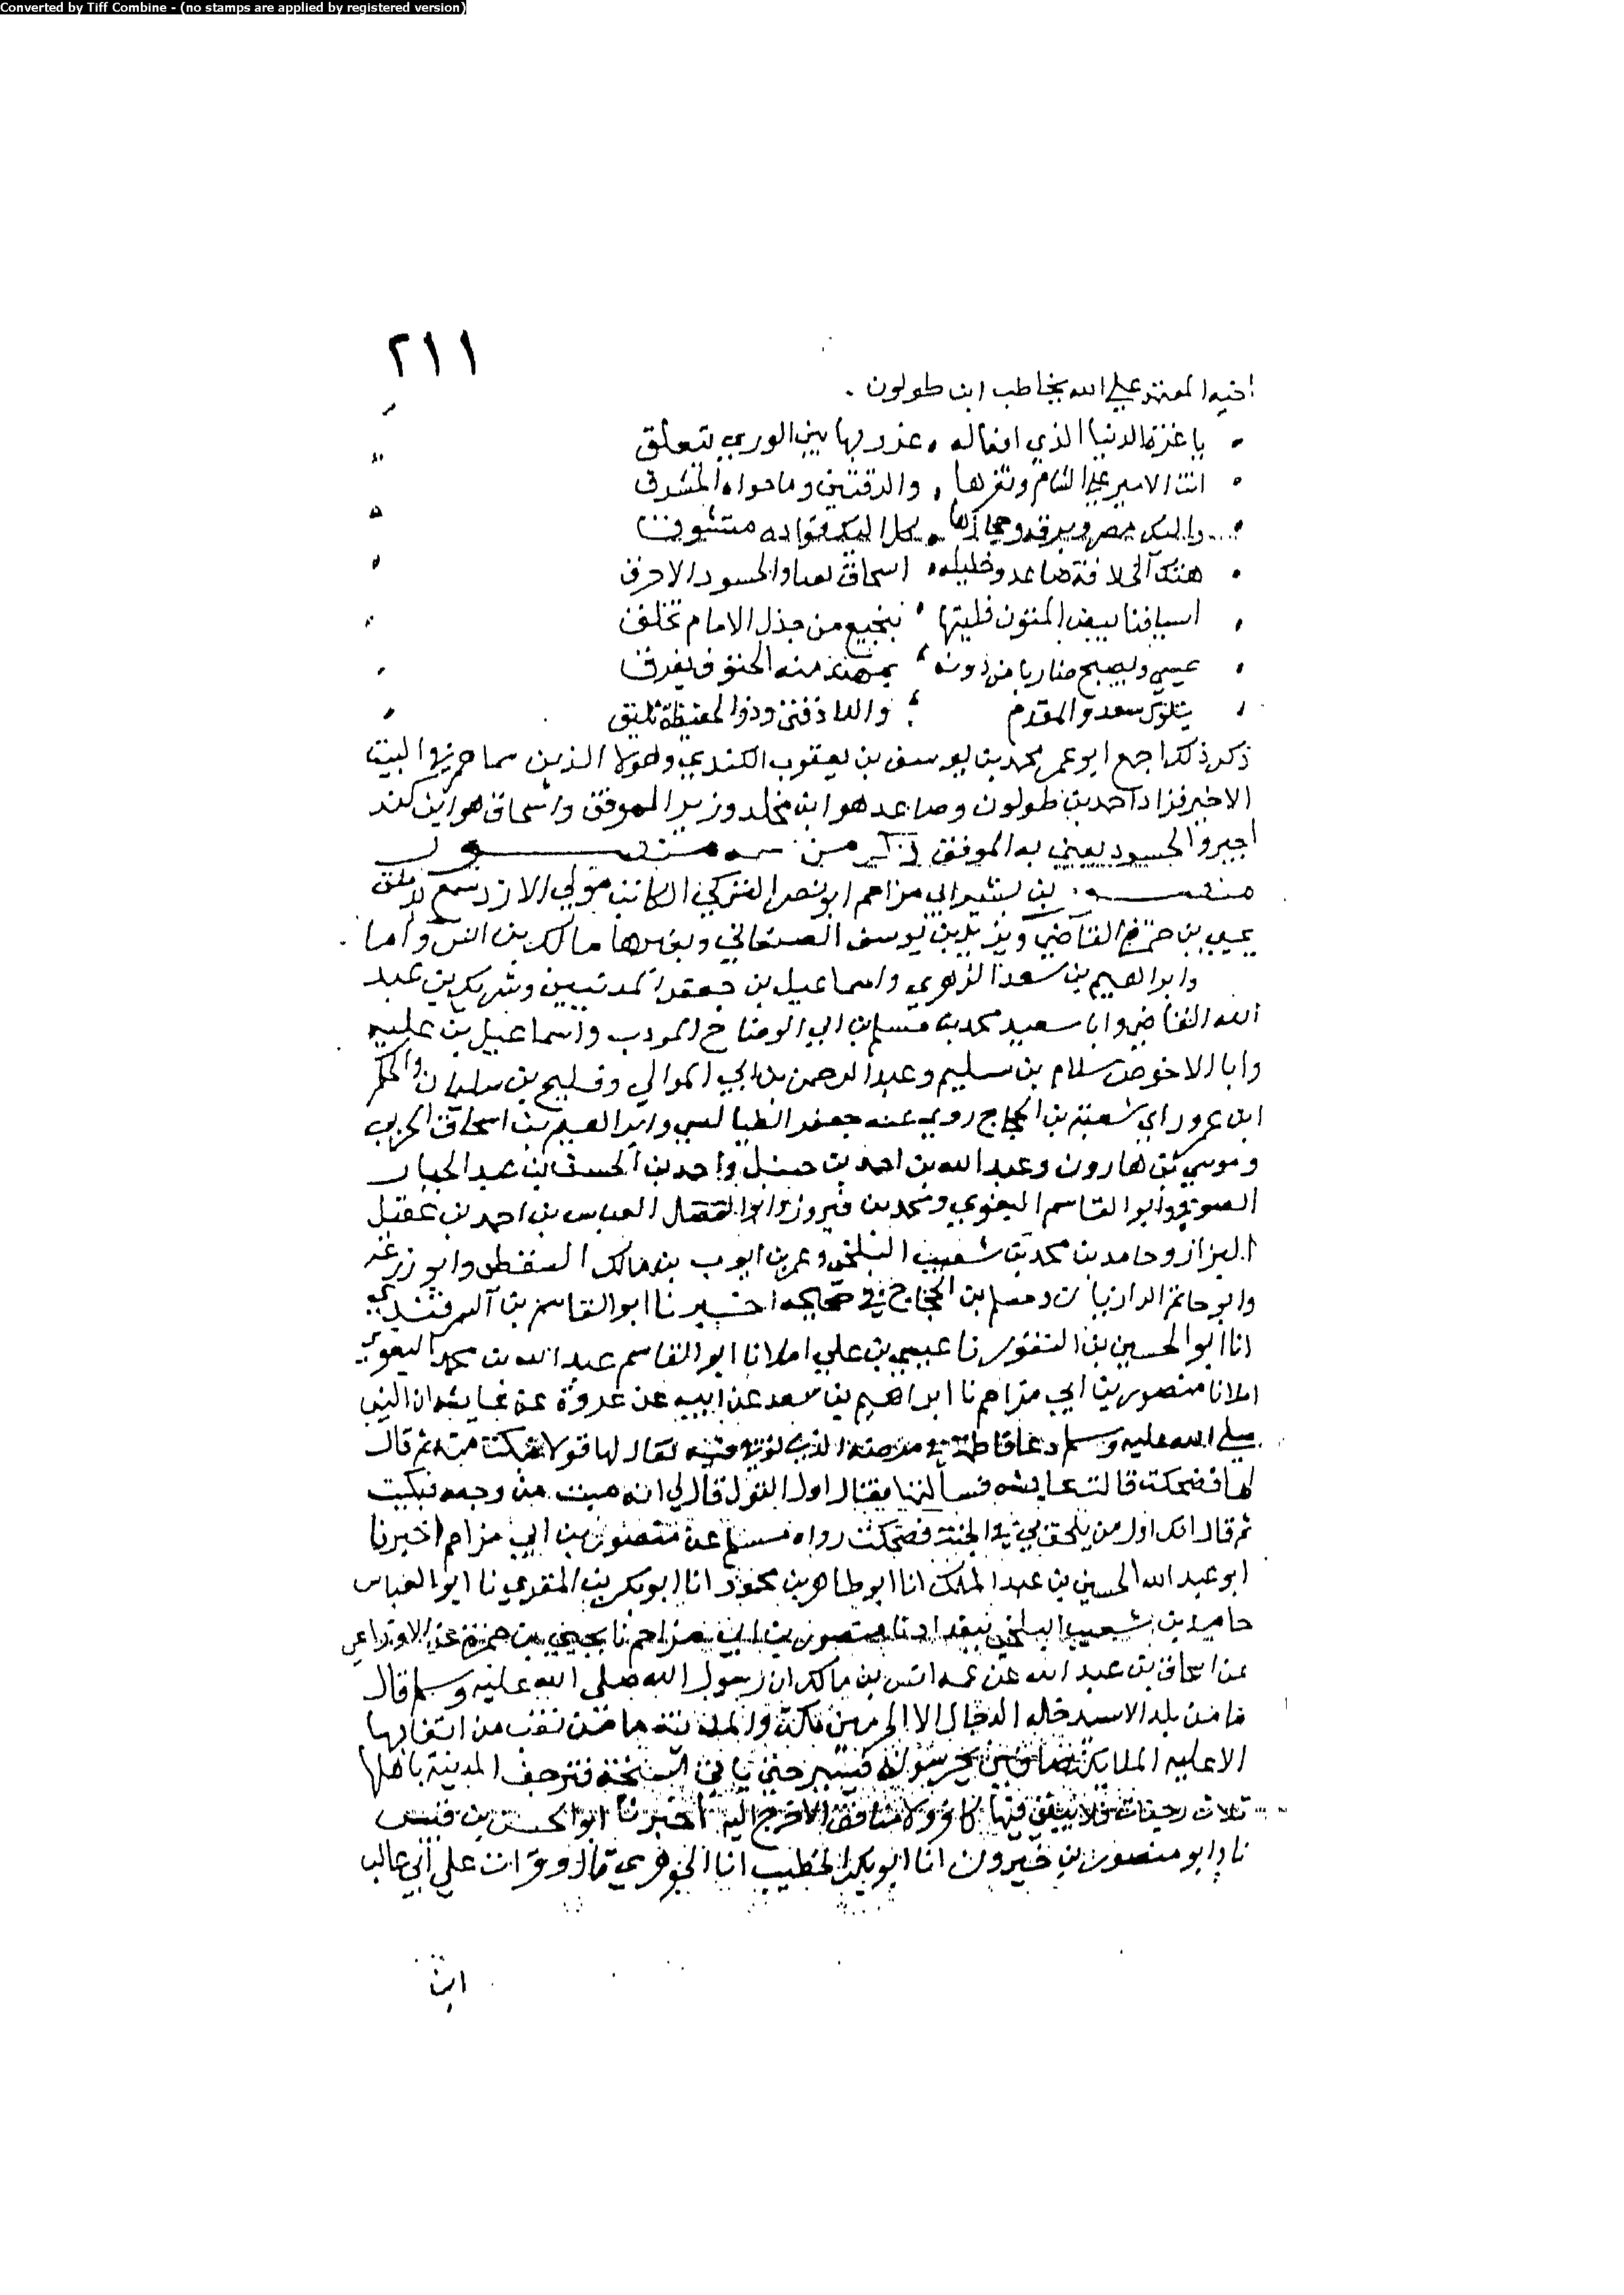 Converted by Tiff Combine - (no stamps are applied by registered version)
٢١١
اخيه المعتمد علي الله يخاطب ابن طولون
يا غرة الدنيا الذي افعاله غرر بها بين الوري تتعلق
انت الامير علي الشام وثغرها والرقتين وما حواه المشرق
واليك مصر وبرقة وحجازها كل اليك فؤاده متشوق
هتك الخلافة صاعد وخليله اسحاق والحسود الاخرق
اسيافنا بيض المتون فليتها بنجيع من خذل الامام تخلق
يمسي ويصبح ضاربا من دونه بمهند منه الحتوف يفرق
يتلوك سعد والمقدم
ذكر ذلك اجمع ابو عمر محمد بن يوسف بن يعقوب الكندي وهولا الذين سماهم في البيت
الاخير قواد احمد بن طولون وصاعد هو ابن مخلد وزير الموفق واسحاق هو ابن كند
اجيز والحسود يعني به الموفق ذكر من اسمه منصور
منصور بن بشير ابي مزاحم ابو نصر التركي الكاتب مولي الازد سمع بدمشق
يحيي بن حمزة القاضي ويزيد بن يوسف الصنعاني وبغيرها مالك بن انس وابا
وابراهيم بن سعد الزهري واسماعيل بن جعفر المدنيين وشريك بن عبد
الله القاضي وابا سعيد محمد بن مسلم بن ابي الوضاح المودب واسماعيل بن علية
وابا الاحوص سلام بن سليم وعبد الرحمن بن ابي الموالي وفليح بن سليمان والحكم
ابن عمر وراي شعبة بن الحجاج روي عنه جعفر الطيالسي وابراهيم بن اسحاق الحربي
وموسي بن هارون وعبد الله بن احمد بن حنبل واحمد بن الحسن بن عبد الجبار
الصوفي وابو القاسم البغوي ومحمد بن فيروز وابو الفضل العباس بن احمد بن عقيل
البزاز وحامد بن محمد بن شعيب البلخي وعمر بن ايوب بن مالك السقطي وابو زرعة
وابو حاتم الرازيان ومسلم بن الحجاج في صحيحه اخبرنا ابو القاسم بن السمرقندي
انا ابو الحسين بن النقور نا عيسي بن علي املا نا ابو القاسم عبد الله بن محمد البغوي
املا نا منصور بن ابي مزاحم نا ابراهيم بن سعد عن ابيه عن عروة عن عايشه ان النبي
صلي الله عليه وسلم دعا فاطمة في مرضه الذي توفي فيه فقال لها قولا فبكت منه ثم قال
لها فضحكت قالت عايشه فسالتها فقال اول القول قال لي انه ميت من وجعه فبكيت
ثم قال انك اول من يلحق بي في الجنة فضحكت رواه مسلم عن منصور بن ابي مزاحم اخبرنا
ابو عبد الله الحسين بن عبد الملك انا ابو طاهر بن محمود انا ابو بكر بن المقري نا ابو العباس
حامد بن شعيب البلخي ببغداد نا منصور بن ابي مزاحم نا يحيي بن حمزة عن الاوزاعي
عن اسحاق بن عبد الله عن عمه انس بن مالك ان رسول الله صلي الله عليه وسلم قال
ما من بلد الا سيدخله الدجال الا الحرمين مكة والمدينة ما من نقب من انقابها
الا عليه الملايكة صافين يحرسونه فيسير حتي ياتي السبخة فترجف المدينة باهلها
ثلاث رجفات فلا يبقي فيها كافر ولا منافق الا خرج اليه اخبرنا ابو الحسن بن قبيس
نا وابو منصور بن خيرون انا ابو بكر الخطيب انا الجوهري قال وقرات علي ابي غالب
ابن